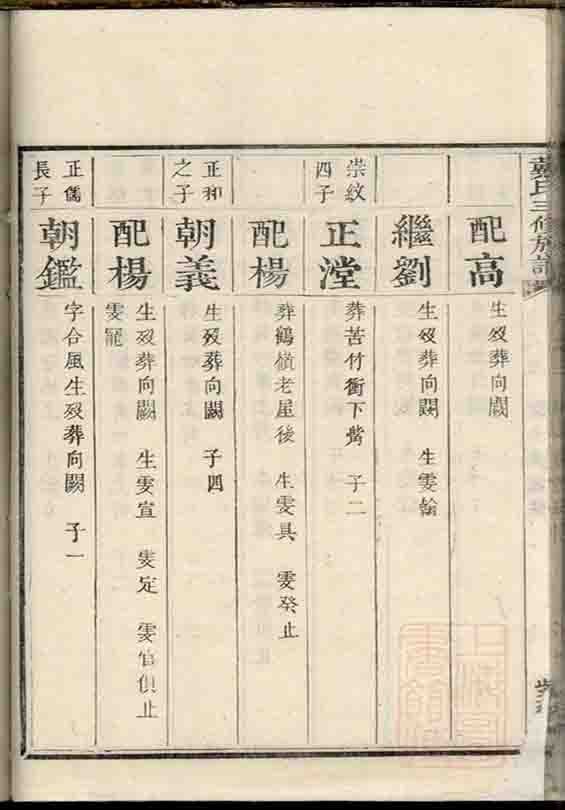 配高
生歿葬向闕
繼劉
生歿葬向闕 生雯翰
崇紋四子
正漟
葬苦竹衝下觜 子二
配楊
葬鶴嶺老屋後 生雯具 雯癸止
正和之子
朝義
生歿葬向闕 子四
配楊
生歿葬向闕 生雯宣 雯定 雯官俱止
雯冕
正儒長子
朝鑑
字合風生歿葬向闕 子一